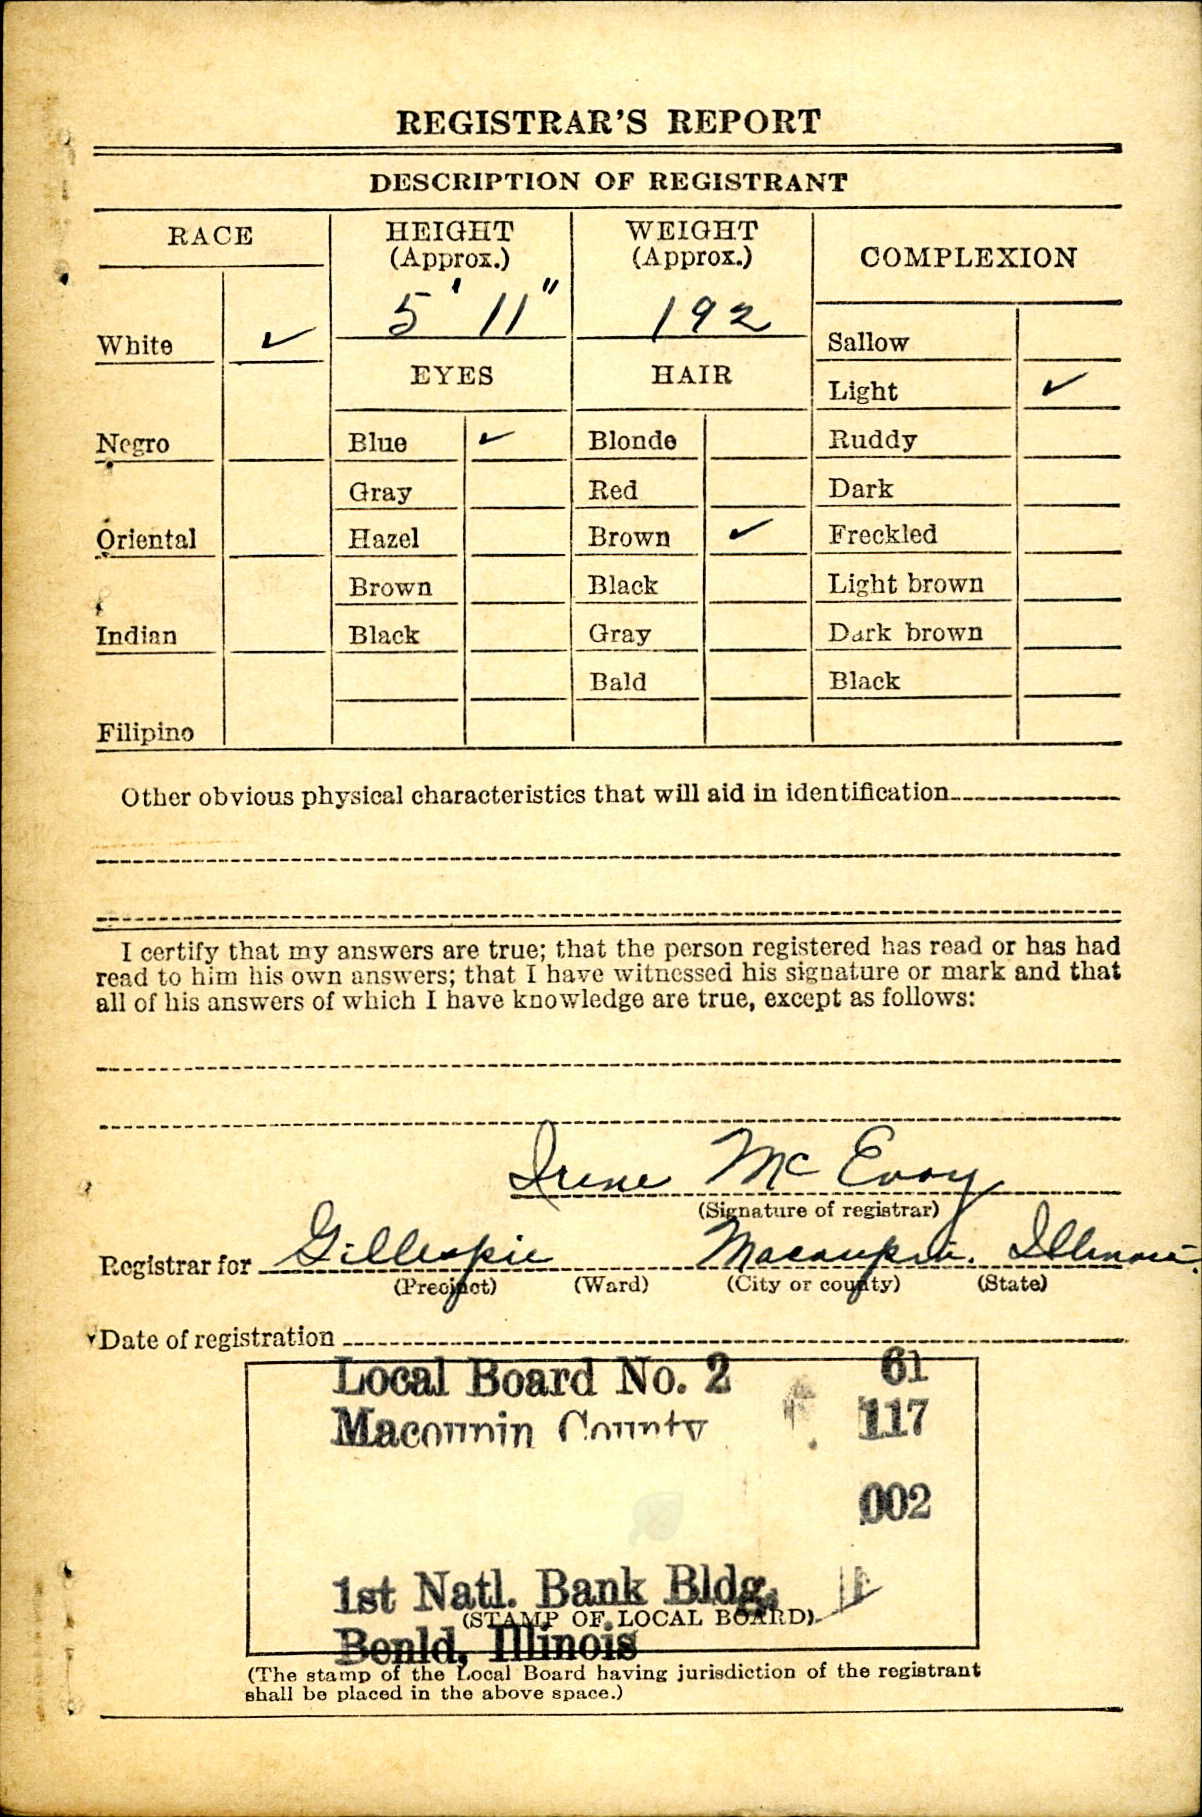 REGISTRAR'S REPORT
DESCRIPTION OF REGISTRANT
RACE
HEIGHT
(Approx.)
WEIGHT
(Approx.)
COMPLEXION
5' 11"
192
White ✓
Sallow
EYES
HAIR
Light ✓
Negro
Blue ✓
Blonde
Ruddy
Gray
Red
Dark
Oriental
Hazel
Brown ✓
Freckled
Brown
Black
Light brown
Indian
Black
Gray
Dark brown
Bald
Black
Filipino
Other obvious physical characteristics that will aid in identification
I certify that my answers are true; that the person registered has read or has had
read to him his own answers; that I have witnessed his signature or mark and that
all of his answers of which I have knowledge are true, except as follows:
Irene McEvoy
(Signature of registrar)
Registrar for Gillespie Macoupin. Illinois.
(Precinct) (Ward) (City or county) (State)
Date of registration
Local Board No. 2 61
Macoupin County 117
002
1st Natl. Bank Bldg.
(STAMP OF LOCAL BOARD)
Benld, Illinois
(The stamp of the Local Board having jurisdiction of the registrant
shall be placed in the above space.)